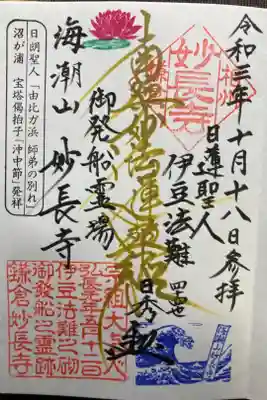 令和三年十月十八日参拝
相州
鎌倉
妙長寺
日蓮聖人
伊豆法難
南無妙法蓮華経
御発船霊場
日秀
海潮山 妙長寺
日朗聖人「由比ガ浜 師弟の別れ」
沼が浦 宝塔偈拍子「沖中節」発祥
宗祖大上人
弘長元年五月十二日
伊豆法難之砌
御発船之霊跡
鎌倉妙長寺